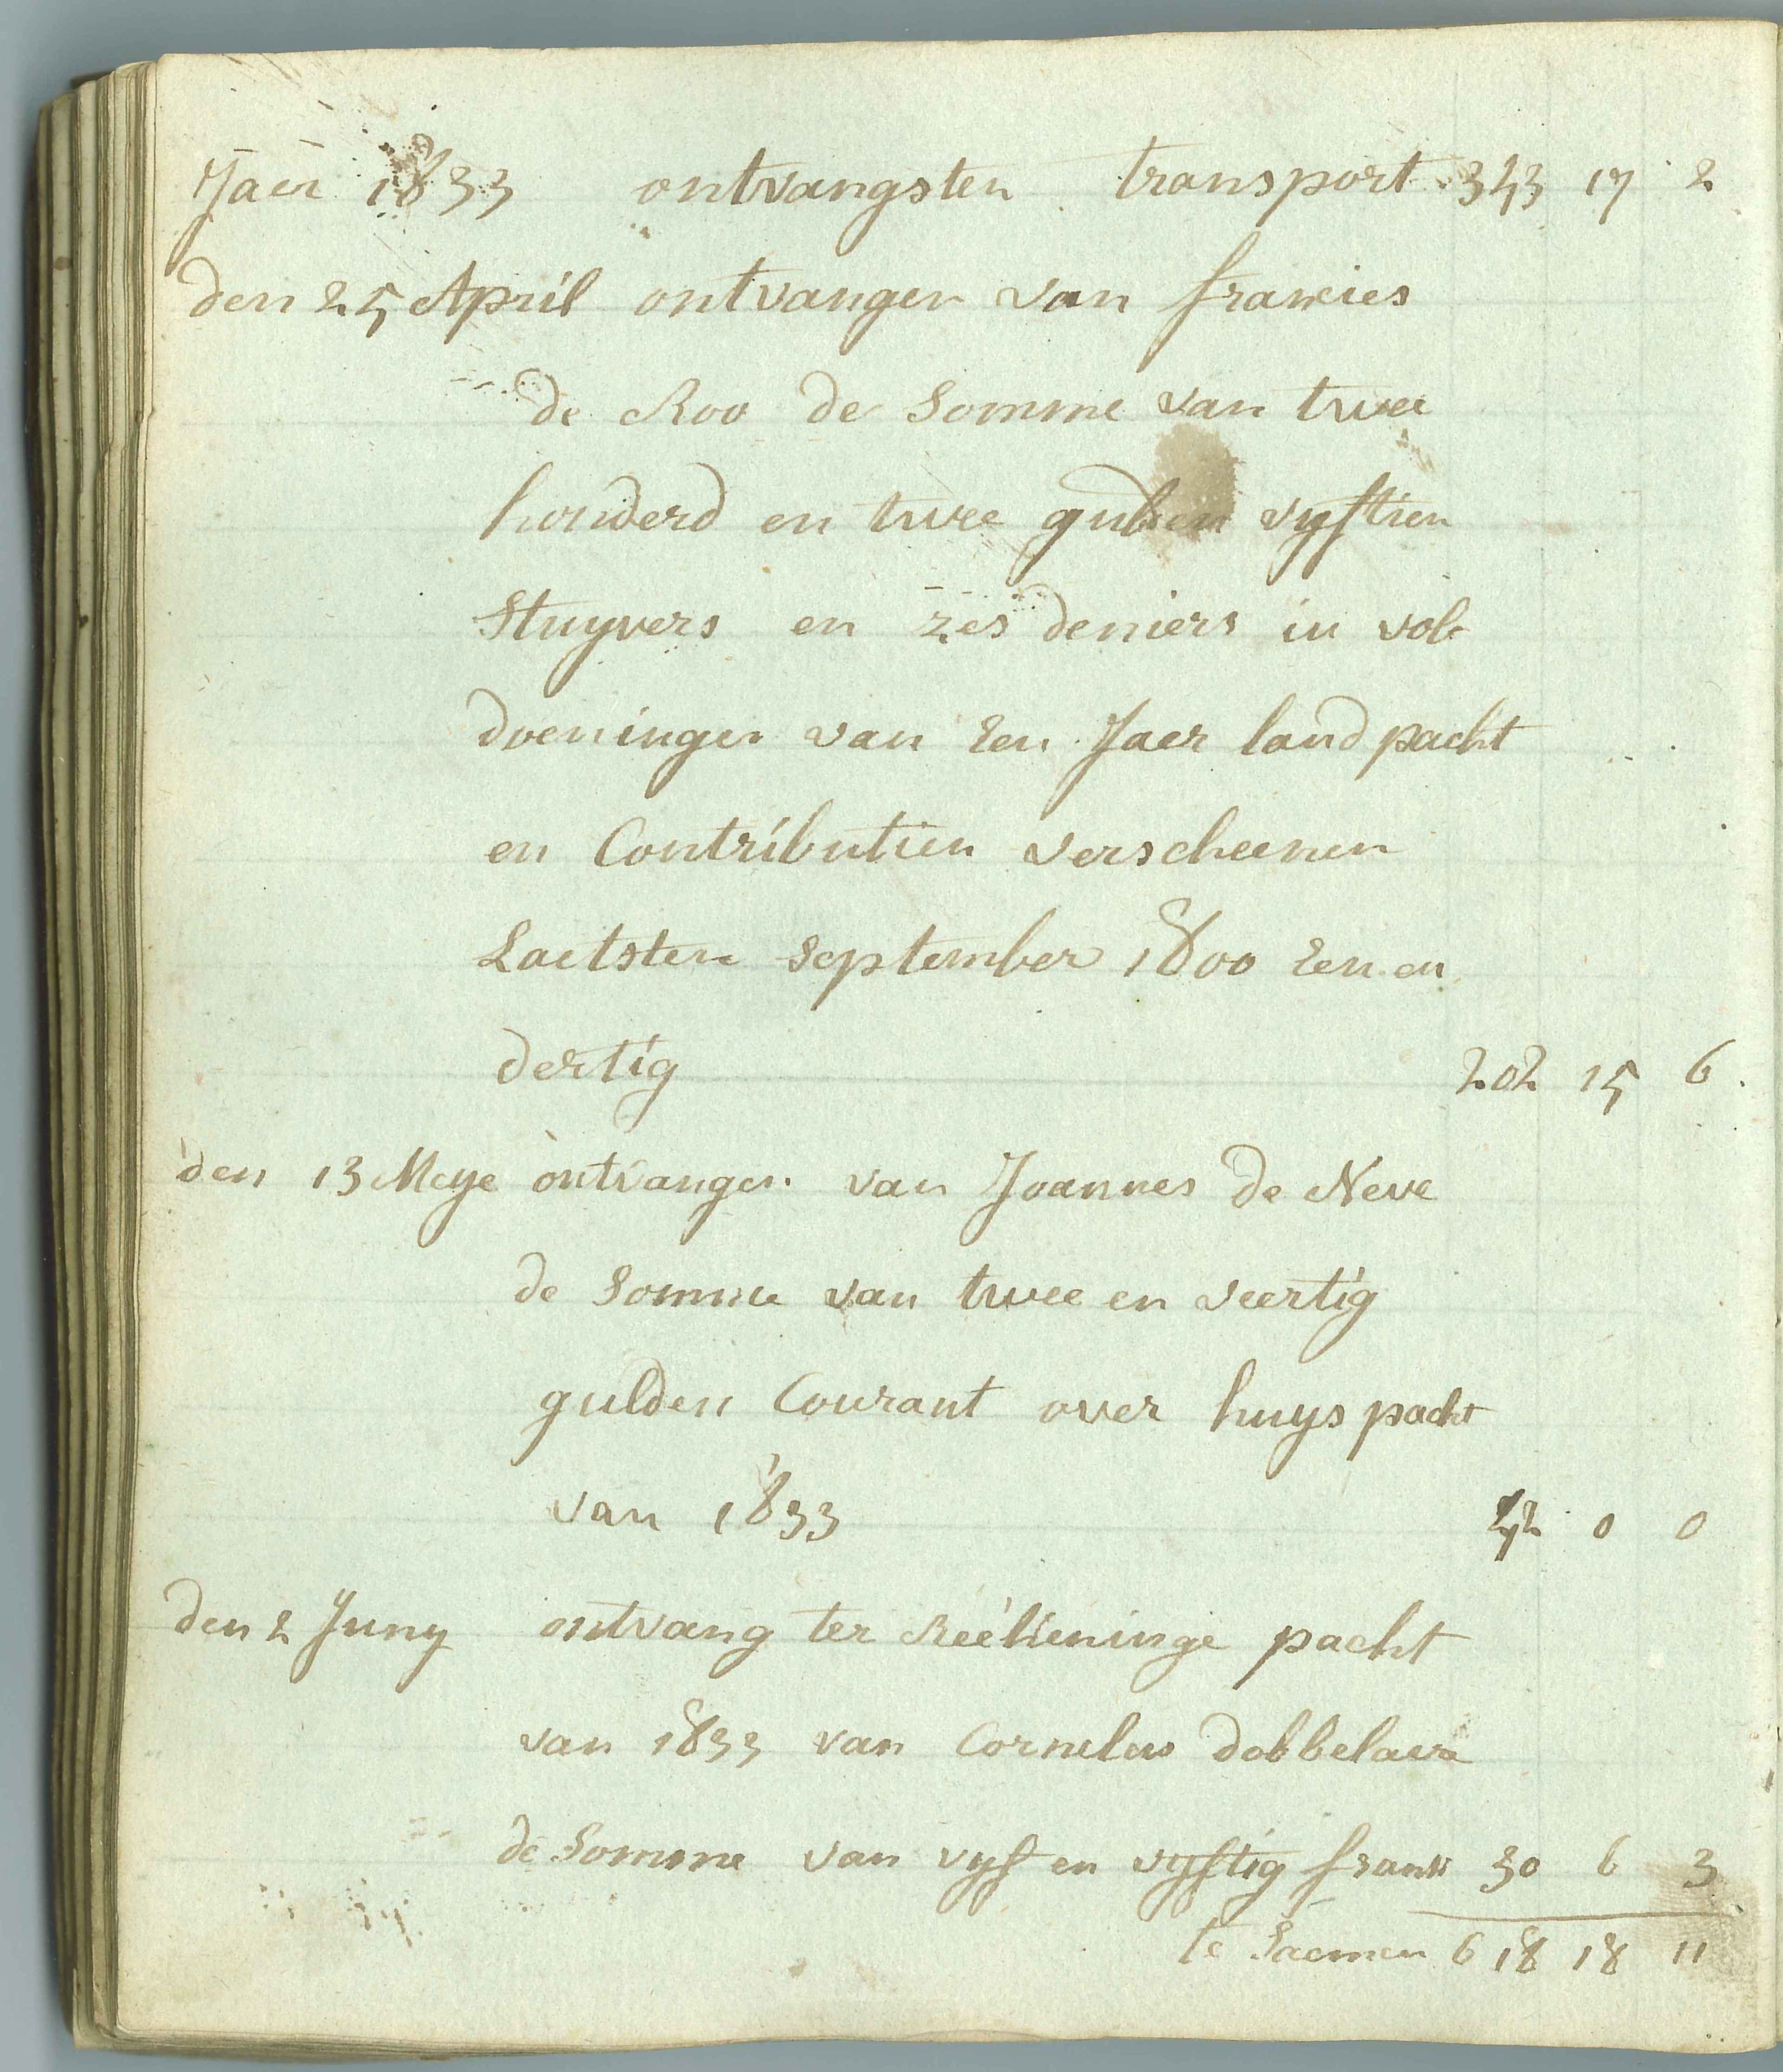 Jaer 1833 ontvangsten transport 343 17 2
den 25 April ontvangen van francies
de Roo de Somme van twee
honderd en twee gulden vyftien
Stuyvers en zes deniers in vol
doeningen van Een Jaer land pacht
en Contributien verscheenen
Laetsten September 1800 Een en
dertig 202 15 6
den 13 Meye ontvangen van Joannes de Neve
de Somme van twee en veertig
gulden Courant over huys pacht
van 1833 42 0 0
den 2 Juny ontvang ter Reékeninge pacht
van 1833 van Cornelus dobbelaere
de Somme van vyf en vyftig frank 30 6 3
te Saemen 618 18 11